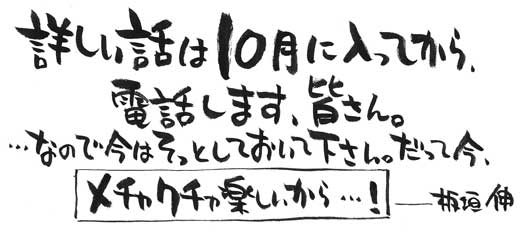 詳しい話は10月に入ってから、
電話します、皆さん。
…なので今はそっとしておいて下さい。だって今、
メチャクチャ楽しいから…!
——板垣 伸